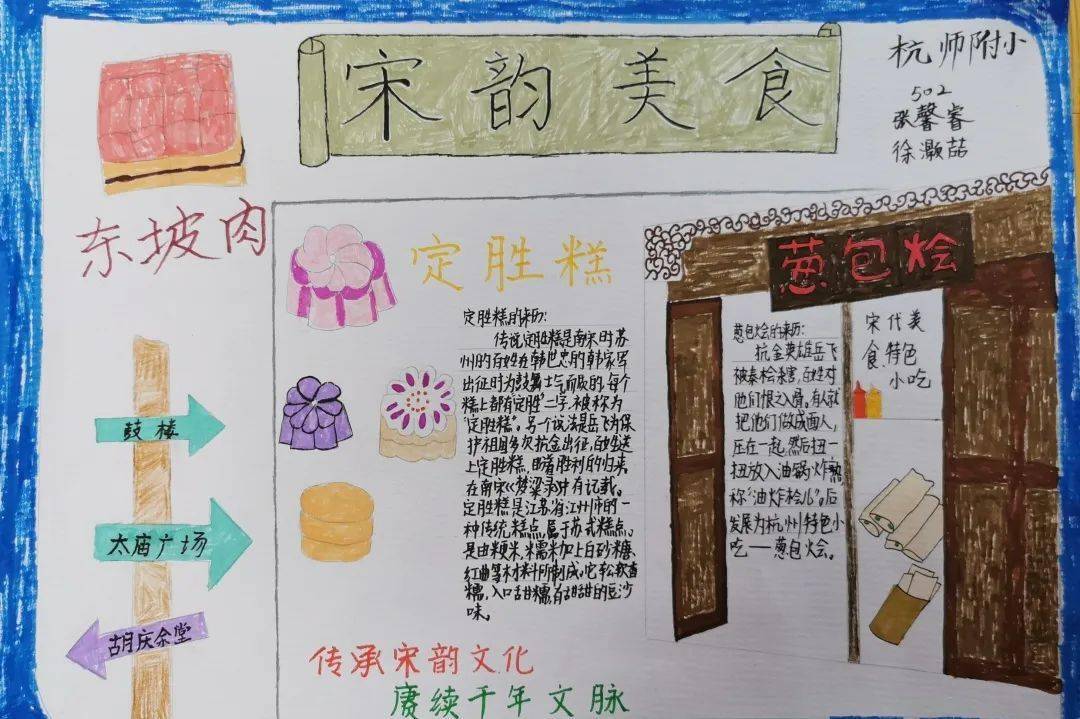 宋韵美食
杭师附小
502
张馨睿
徐灏喆
东坡肉
鼓楼
太庙广场
胡庆余堂
定胜糕
定胜糕的来历:
传说定胜糕是南宋时苏
州的百姓在韩世忠的韩家军
出征时为鼓舞士气而做的,每个
糕上都有"定胜"二字,被称为
"定胜糕"。另一个说法是岳飞为保
护祖国多次抗金出征,百姓送
上定胜糕,
在南宋《梦粱录》中有记载。
定胜糕是江苏省江州师的一
种传统糕点,属于苏式糕点。
是由粳米,糯米加上白砂糖、
红曲等材料所制成。它松软香
糯,入口甜糯,有甜甜的豆沙
味。
葱包烩
葱包烩的来历:
抗金英雄岳飞
被秦桧杀害,百姓对
他们恨之入骨。有人就
把他们做成面人,
压在一起,然后扭一
扭放入油锅炸熟,
称"油炸桧儿"。后
发展为杭州特色小
吃——葱包烩。
宋代美
食,特色
小吃
传承宋韵文化
赓续千年文脉